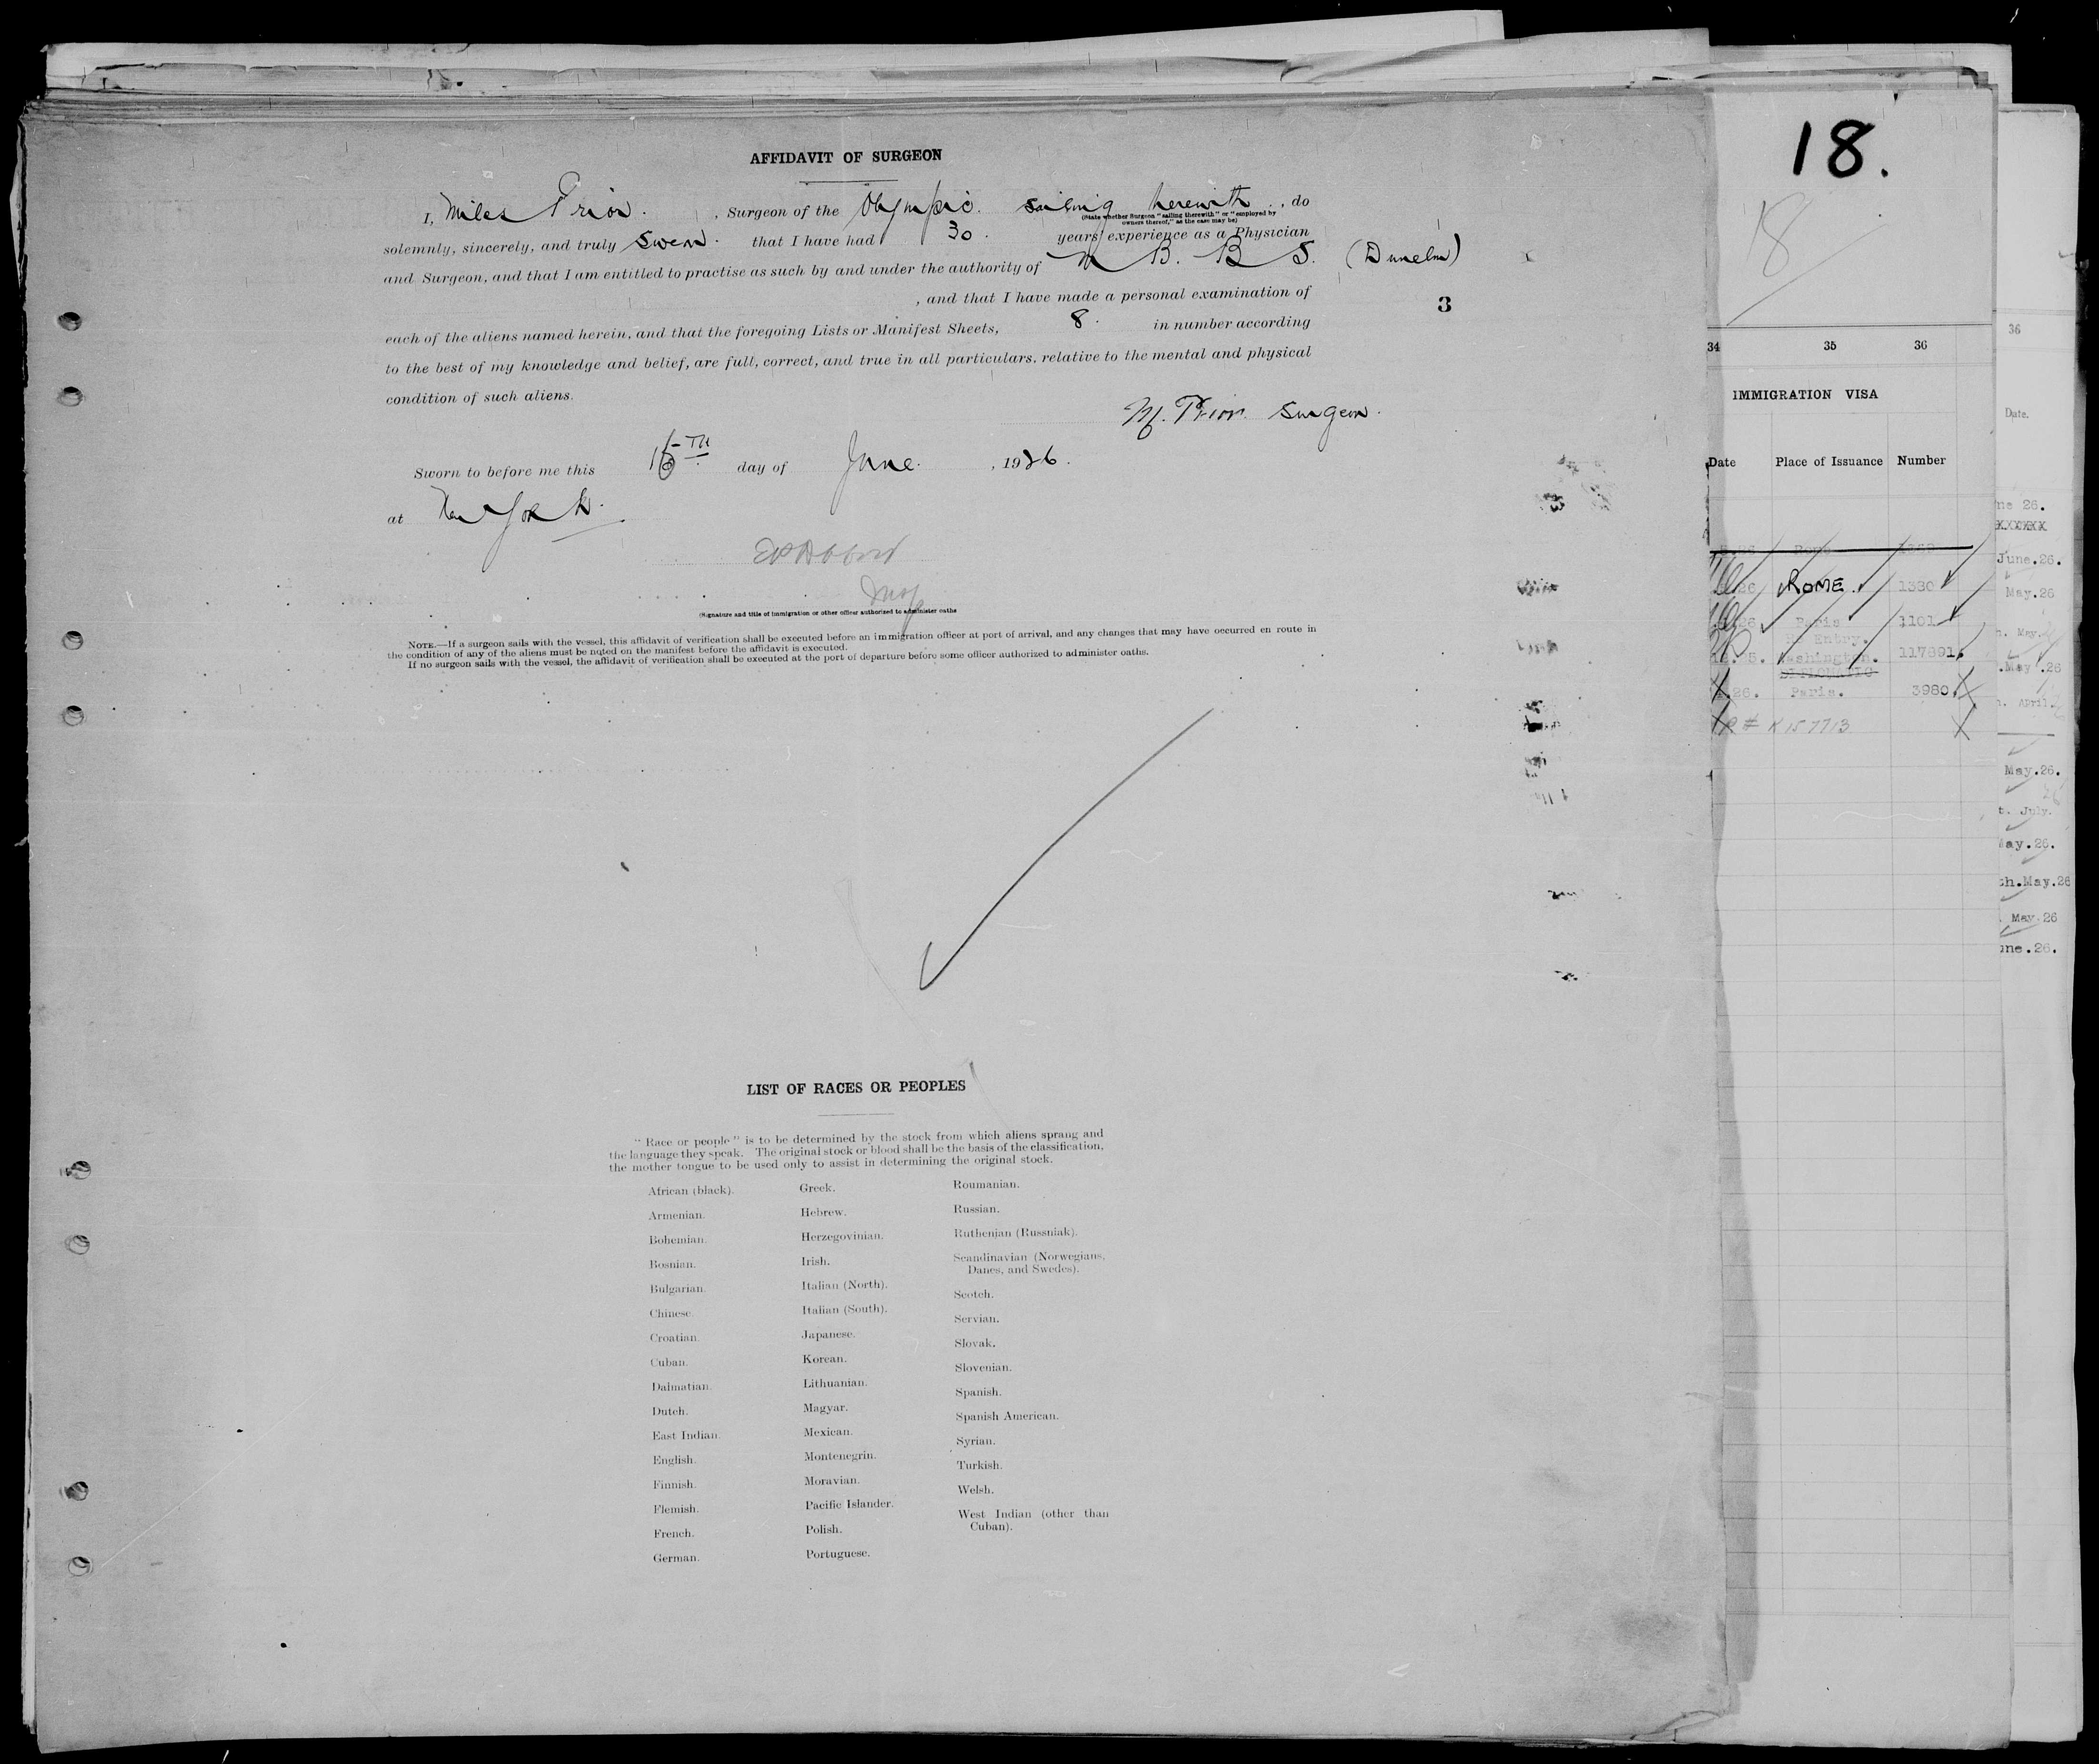 AFFIDAVIT OF SURGEON
I, Miles Prior. , Surgeon of the Olympic. sailing herewith , do
(State whether Surgeon "sailing therewith" or "employed by
owners thereof," as the case may be)
solemnly, sincerely, and truly swear. that I have had 30. years' experience as a Physician
and Surgeon, and that I am entitled to practise as such by and under the authority of M B. B S. (Dunelm)
, and that I have made a personal examination of
3
each of the aliens named herein, and that the foregoing Lists or Manifest Sheets, 8. in number according
to the best of my knowledge and belief, are full, correct, and true in all particulars, relative to the mental and physical
condition of such aliens.
M. Prior. Surgeon.
Sworn to before me this 16TH day of June. , 1926.
at New York.
Insp
(Signature and title of immigration or other officer authorized to administer oaths
NOTE.—If a surgeon sails with the vessel, this affidavit of verification shall be executed before an immigration officer at port of arrival, and any changes that may have occurred en route in
the condition of any of the aliens must be noted on the manifest before the affidavit is executed.
If no surgeon sails with the vessel, the affidavit of verification shall be executed at the port of departure before some officer authorized to administer oaths.
LIST OF RACES OR PEOPLES
"Race or people" is to be determined by the stock from which aliens sprang and
the language they speak. The original stock or blood shall be the basis of the classification,
the mother tongue to be used only to assist in determining the original stock.
African (black).
Armenian.
Bohemian.
Bosnian.
Bulgarian.
Chinese.
Croatian.
Cuban.
Dalmatian.
Dutch.
East Indian.
English.
Finnish.
Flemish.
French.
German.
Greek.
Hebrew.
Herzegovinian.
Irish.
Italian (North).
Italian (South).
Japanese.
Korean.
Lithuanian.
Magyar.
Mexican.
Montenegrin.
Moravian.
Pacific Islander.
Polish.
Portuguese.
Roumanian.
Russian.
Ruthenian (Russniak).
Scandinavian (Norwegians,
Danes, and Swedes).
Scotch.
Servian.
Slovak.
Slovenian.
Spanish.
Spanish American.
Syrian.
Turkish.
Welsh.
West Indian (other than
Cuban).
18.
18
34 35 36
IMMIGRATION VISA
Date Place of Issuance Number
26 ROME. 1380
26 Paris 1101
Entry.
25. Washington. 117891.
DIPLOMATIC
26. Paris. 3980.
# K 157713
36
Date.
26.
XXXXXX
June.26.
May.26
May.
.May .26
April.
May.26.
July.
May.26.
May.26
May.26
26.